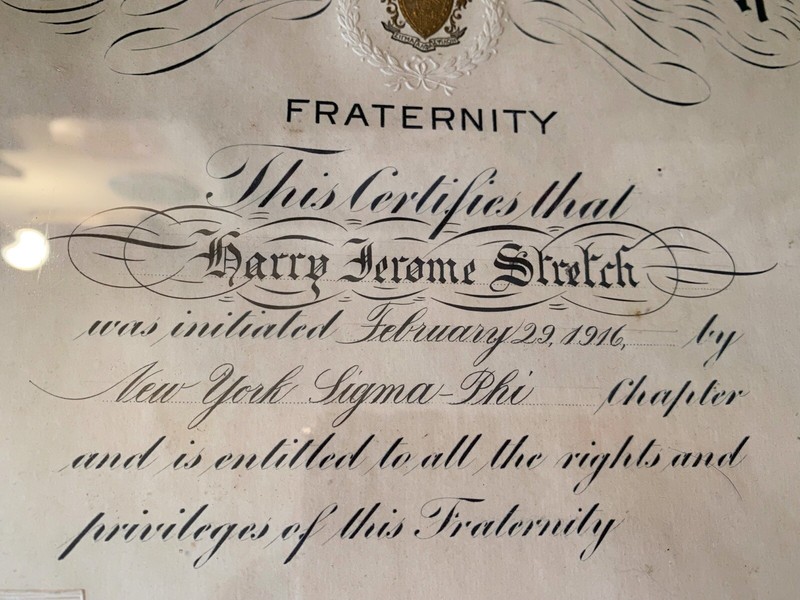 FRATERNITY
This Certifies that
Harry Jerome Stretch
was initiated February 29, 1916, by
New York Sigma-Phi Chapter
and is entitled to all the rights and
privileges of this Fraternity